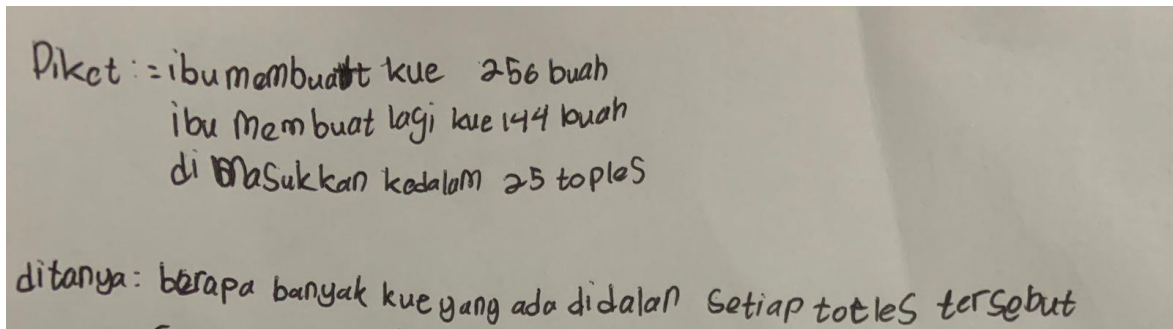 Diket := ibu membuat kue 256 buah
ibu membuat lagi kue 144 buah
di masukkan kedalam 25 toples
ditanya: berapa banyak kue yang ada didalan setiap totles tersebut